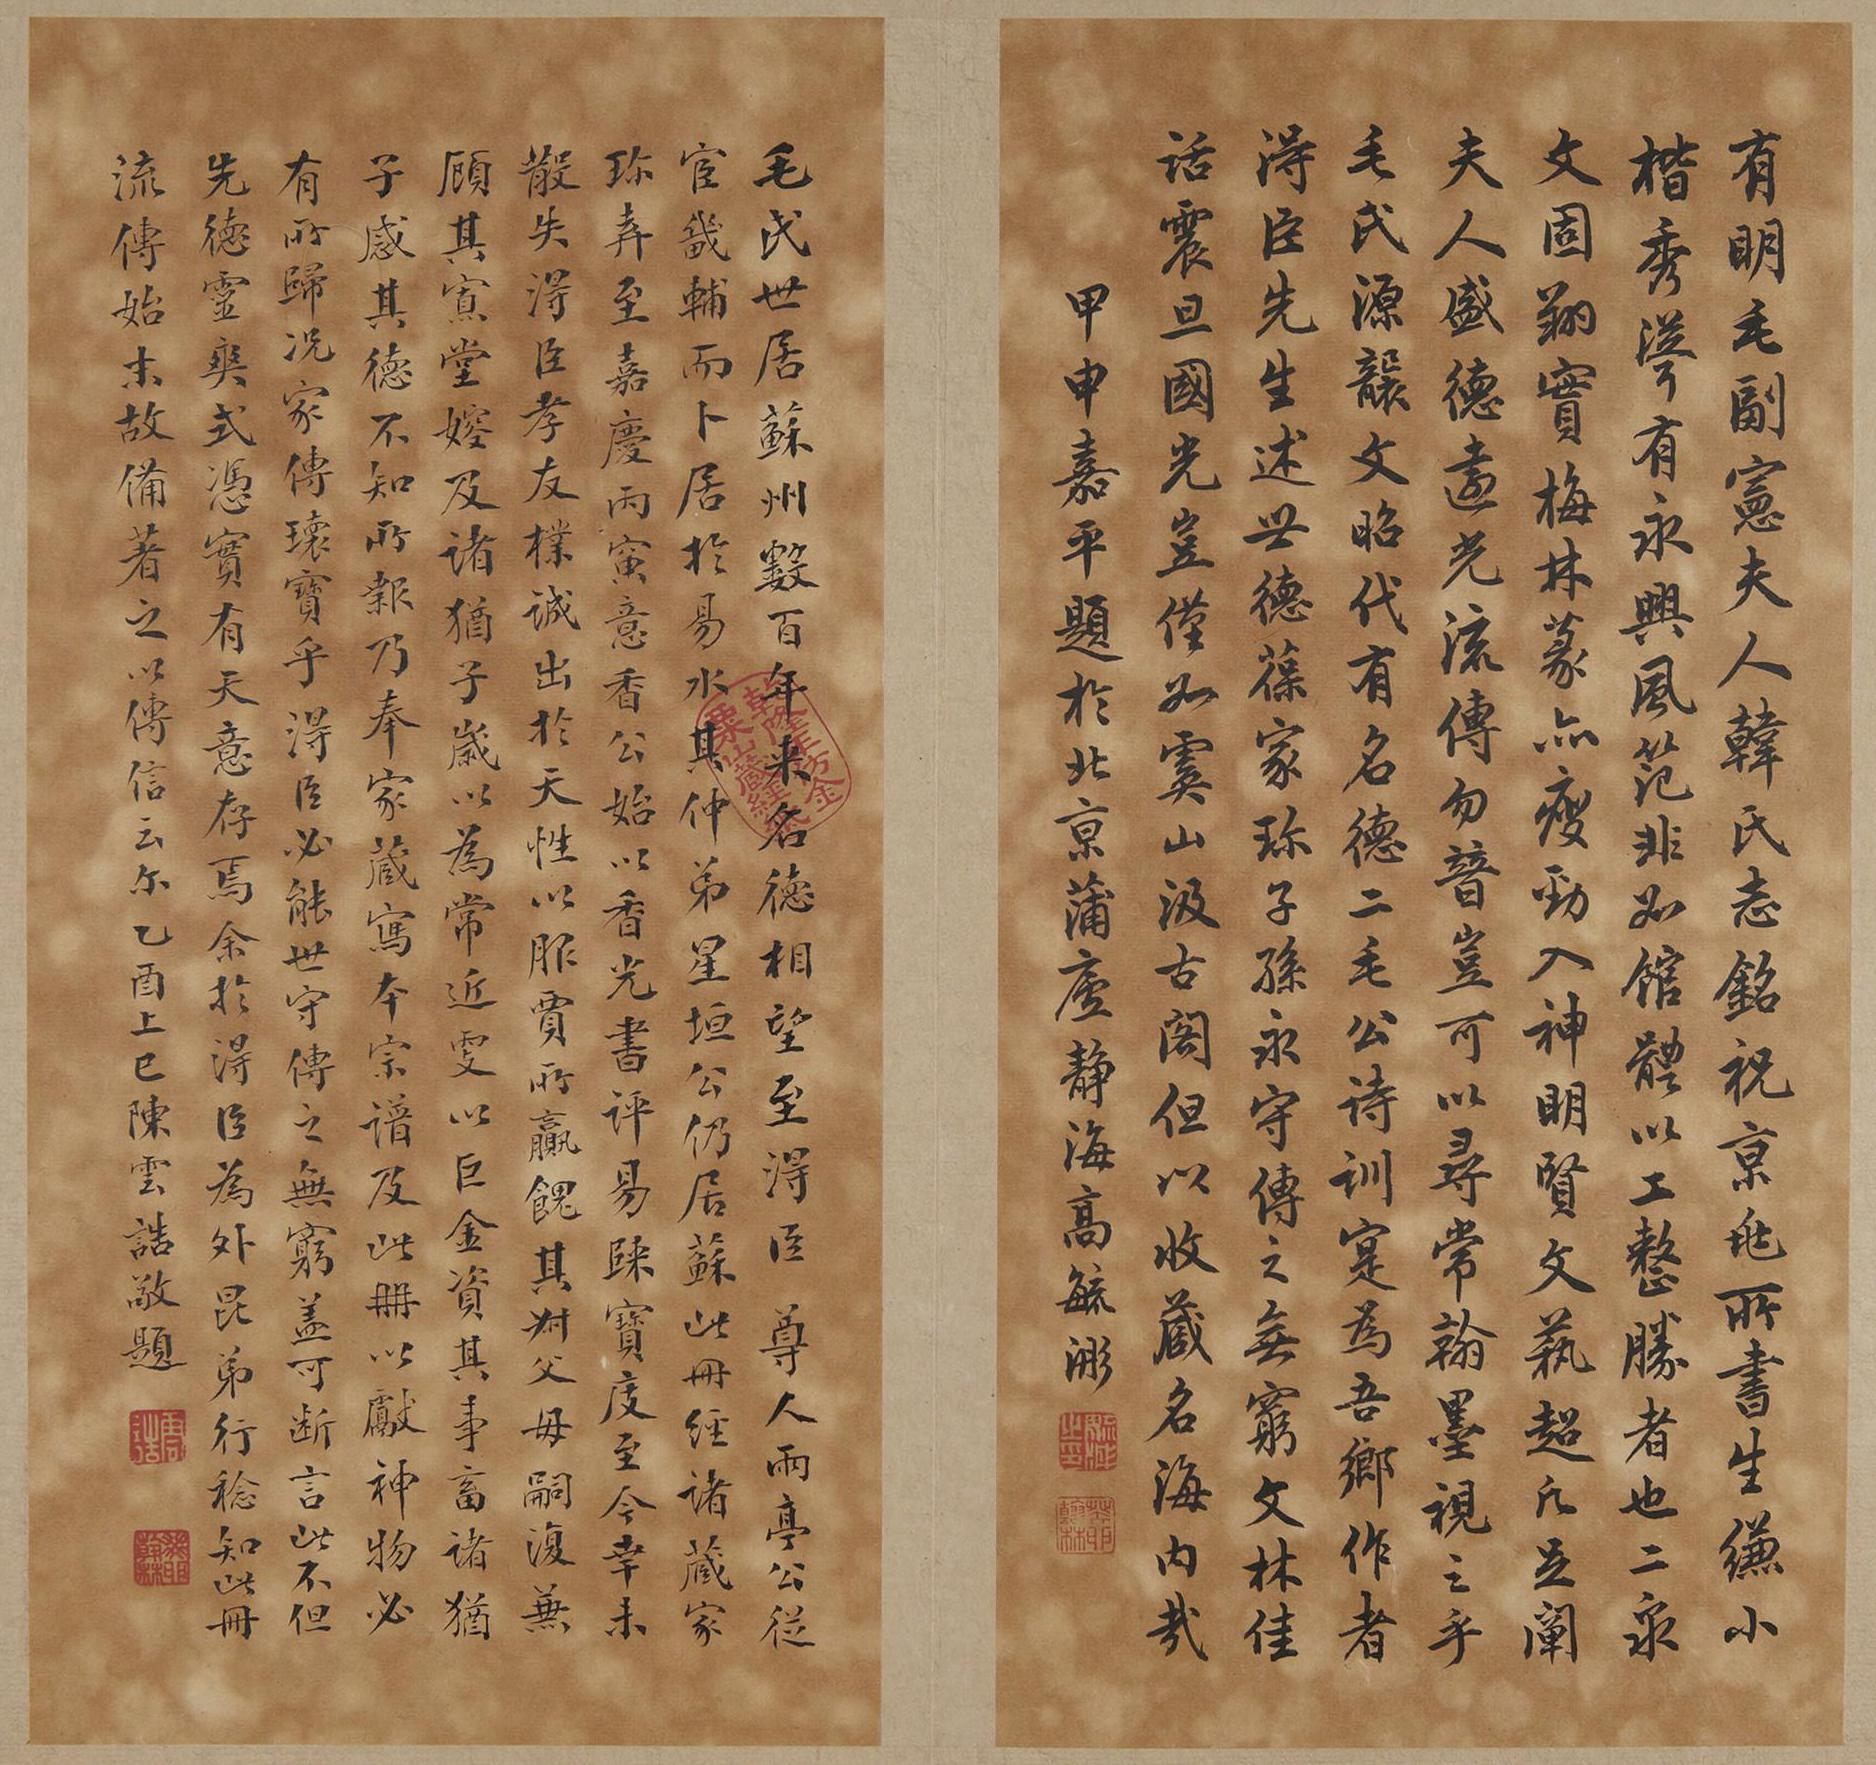 有明毛副憲夫人韓氏志銘祝京兆所書生縑小
楷秀澤有永興風范非如館體以工整勝者也二泉
文固翔實梅林篆亦瘦勁入神明賢文藝超凡足闡
夫人盛德遺光流傳勿替豈可以尋常翰墨視之乎
毛氏源襲文昭代有名德二毛公詩訓寔為吾鄉作者
得臣先生述世德葆家珍子孫永守傳之無窮文林佳
話震旦國光豈僅如虞山汲古閣但以收藏名海內哉
甲申嘉平題於北京蒲廬靜海高毓浵
毛氏世居蘇州數百年来名德相望至得臣 尊人雨亭公從
宦畿輔而卜居於易水其仲弟星垣公仍居蘇此冊經諸藏家
珍弆至嘉慶丙寅意香公始以香光書評易歸寶度至今幸未
散失得臣孝友樸誠出於天性以服賈所贏餽其尉父母嗣復兼
顧其寡堂嫆及諸猶子歲以為常近更以巨金資其事畜諸猶
子感其德不知所報乃奉家藏寫本宗譜及此冊以獻神物必
有所歸况家傳瓌寶乎得臣必能世守傳之無窮盖可斷言此不但
先德靈爽式憑實有天意存焉余於得臣為外昆弟行稔知此冊
流傳始末故備著之以傳信云尔乙酉上巳陳雲誥敬題